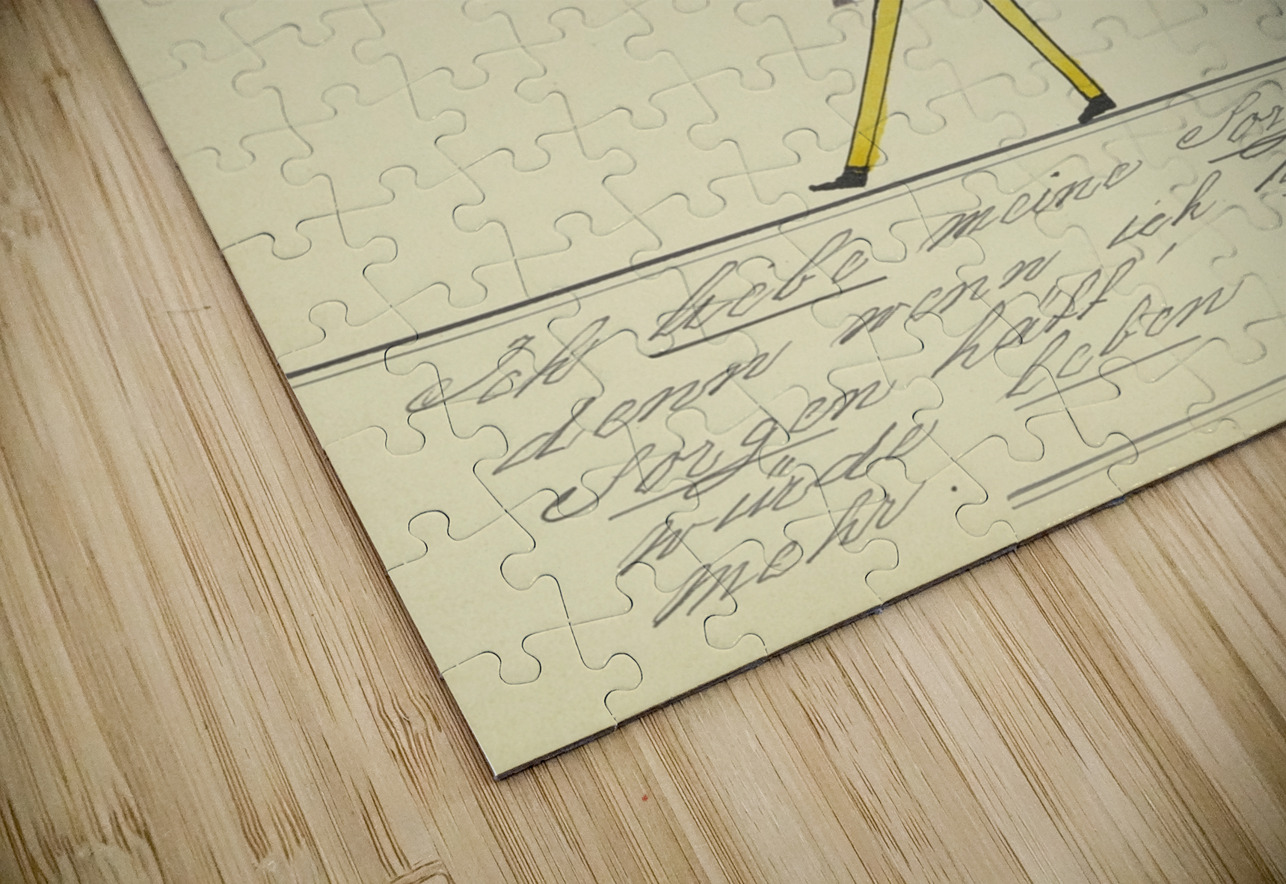 Ich liebe meine Sor
denn wenn ich
Sorgen hätt'
würde leben
mehr.